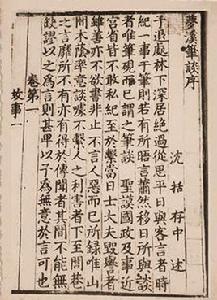 夢溪筆談序
沈括存中述
予退處林下深居絶過從思平日與客言者時
紀一事于筆則若有所晤言蕭然移日所與談
者唯筆硯而已謂之筆談 聖謨國政及事近
宮省皆不敢私紀至於繫當日士大夫毀譽者
雖善亦不欲書非止不言人惡而已所録唯山
間木陰率意談噱不繫人之利害者下至閭巷
之言靡所不有亦有得於傳聞者其間不能無
缺謬以之為言則甚卑以予為無意於言可也
卷第一
故事一